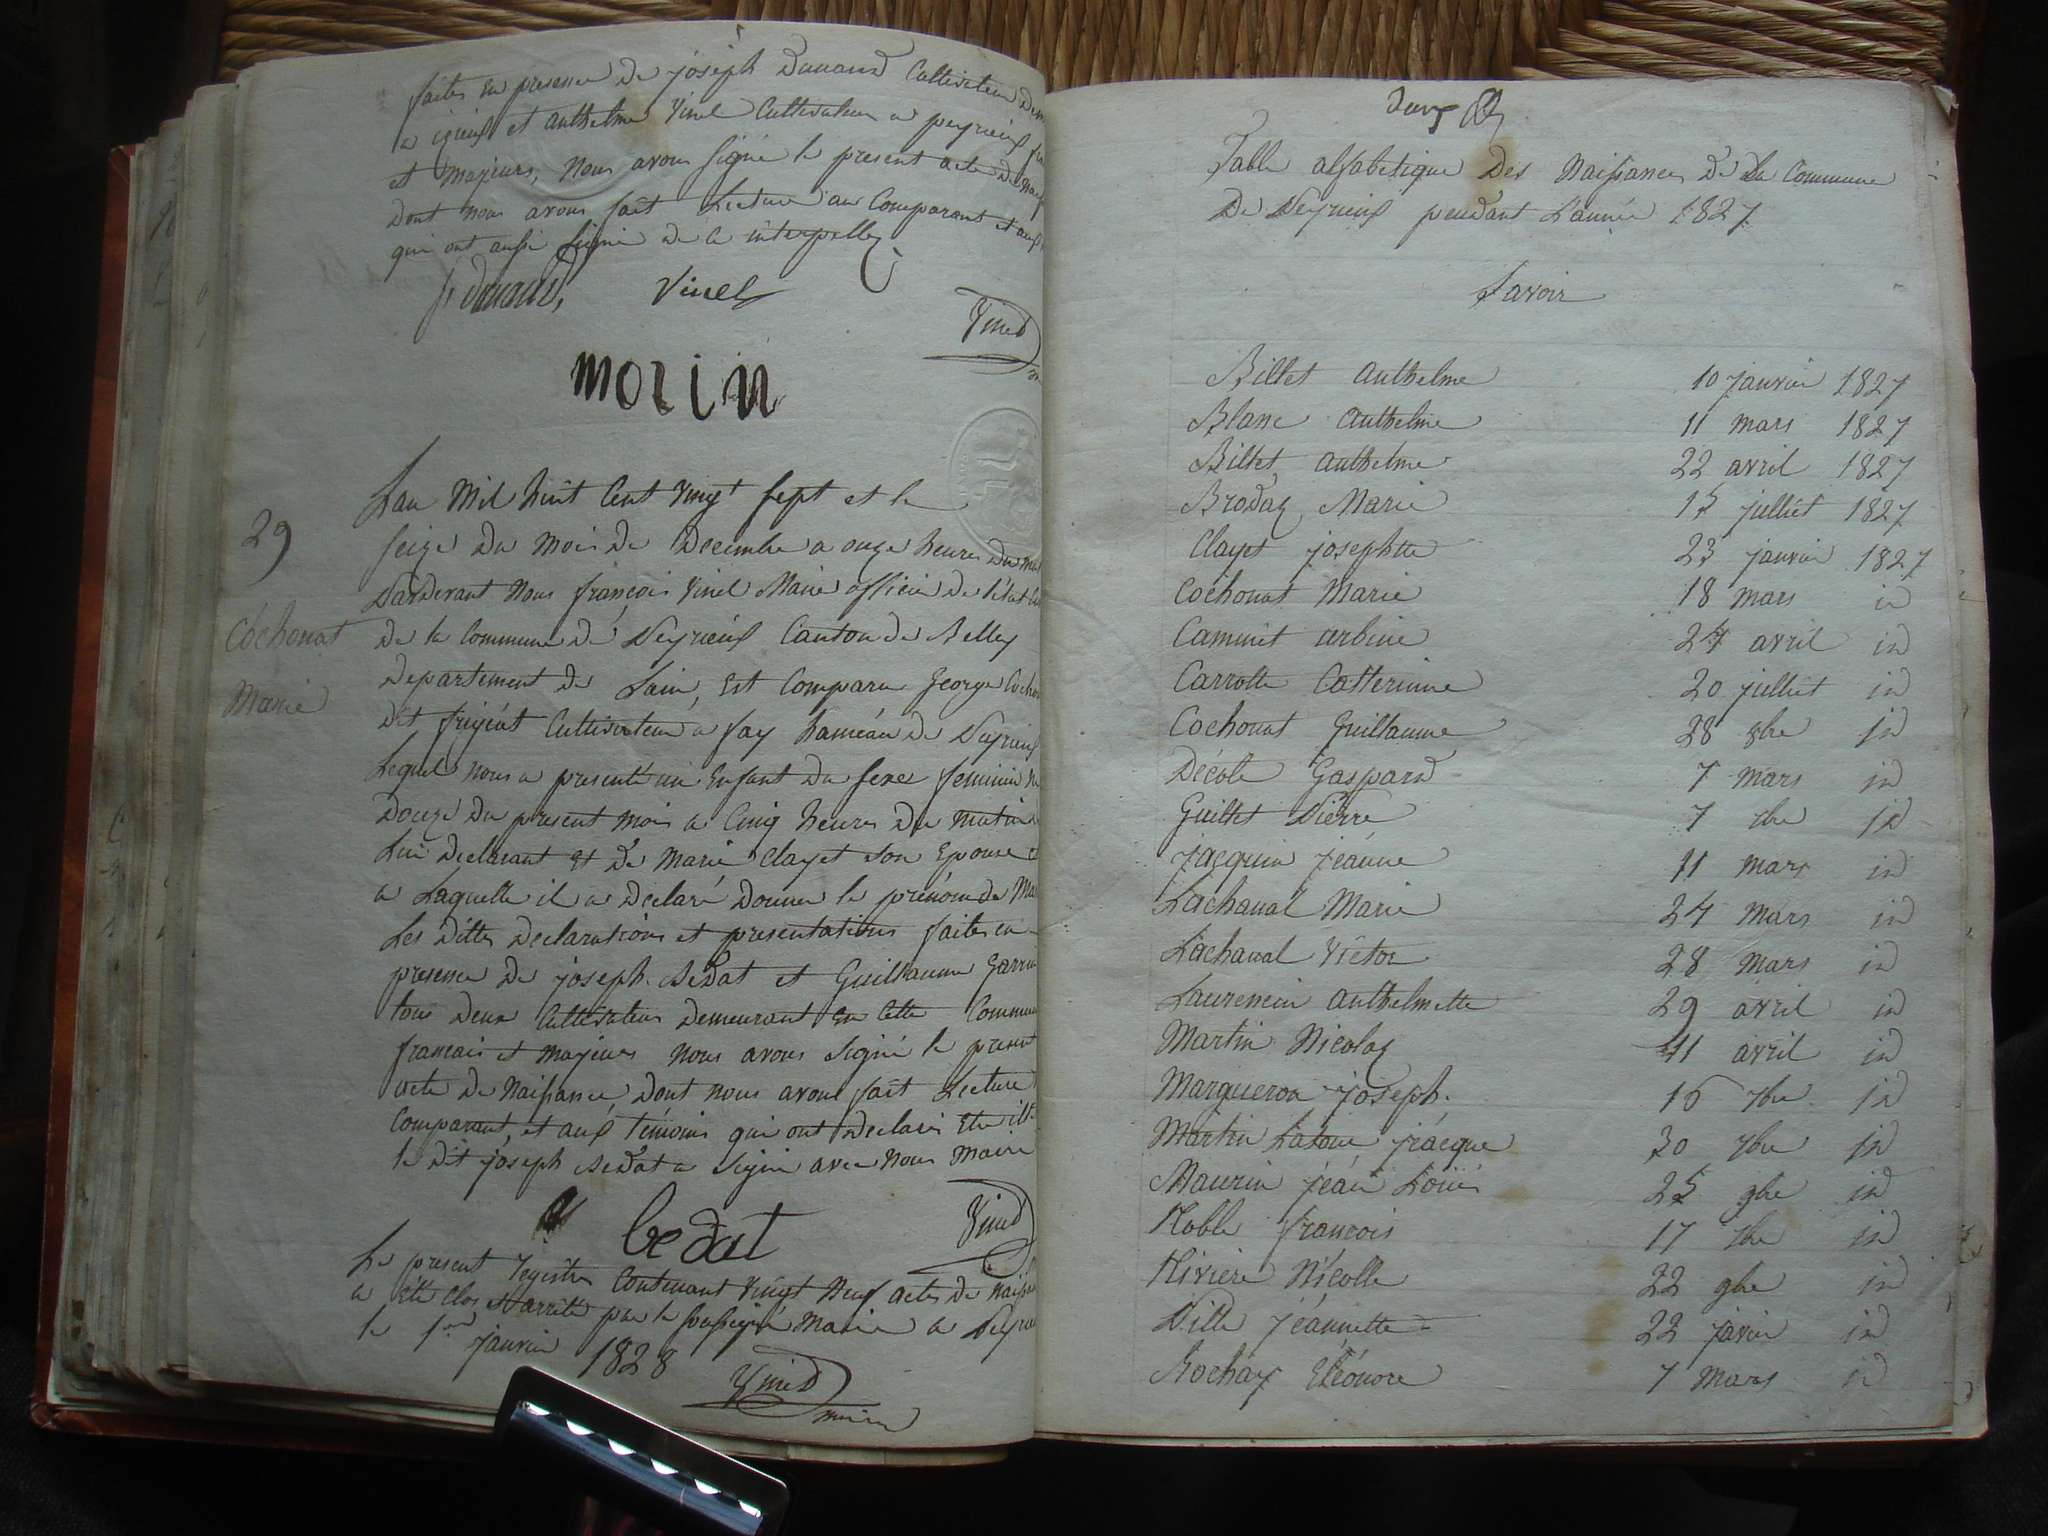 faites en presence de joseph Dunand Cultivateur
a izieux et anthelme Vinel Cultivateur a peyrieux
et majeurs, Nous avons signé le present acte de
Dont nous avons fait Lecture au Comparant et aux
qui ont aussi signé de ce interpellez
j Dunand, Vinel
Vinel
morin
29
Lan Mil huit Cent Vingt sept et le
seize du mois de Decembre a onze heures du
Pardevant Nous françois Vinel Maire officier de l'état
Cochonat
de la Commune de Peyrieux Canton de Belley
Marie
Departement de Lain, Est Comparu George
dit Cultivateur a fay hameau de Peyrieux
Lequel nous a presenté un Enfant du sexe feminin
Douze du present mois a Cinq heures du matin
Lui declarant Et de Marie Clayet son Epouse
a Laquelle il a declaré Donner le prénom de
Les dittes declarations et presentations faites en
presence de joseph Bedat et Guillaume
tous deux Cultivateurs demeurant en Cette Commune
francais et majeurs nous avons signé le present
acte de Naissance dont nous avons fait Lecture
Comparant, et aux témoins qui ont declaré
le dit joseph Bedat a signé avec nous maire
bedat Vinel
Le present registre Contenant Vingt Neuf actes de
a été Clos et arrêté par le soussigné Maire a
le 1er janvier 1828
Vinel
maire
Table alfabetique Des Naissances De La Commune
De Peyrieux pendant L'année 1827
Savoir
Billet anthelme 10 janvier 1827
Blanc anthelme 11 mars 1827
Billet anthelme 22 avril 1827
Brodaz Marie 15 julliet 1827
Clayet josephte 23 janvier 1827
Cochonat Marie 18 mars id
Caminet urbine 24 avril id
Carrotte Catterinne 20 julliet id
Cochonat Guillaume 28 9bre id
Décole Gaspard 7 mars id
Guillet Pierre 7 7bre id
jacquin jeanne 11 mars id
Lachanal Marie 24 mars id
Lachanal Victor 28 mars id
Laurencin anthelmette 29 avril id
Martin Nicolas 11 avril id
Margueron joseph. 16 7bre id
Martin Latour jacque 30 7bre id
Maurin jéan Louis 25 9bre id
Noble françois 17 7bre id
Riviere Nicolle 22 9bre id
Pille jéannette 22 javier id
Rochaz Eléonore 7 mars id